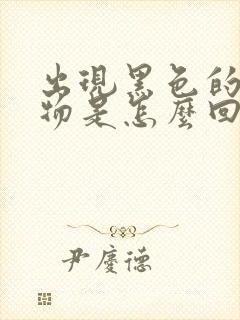 出現黑色的
物是怎麼回
尹慶德